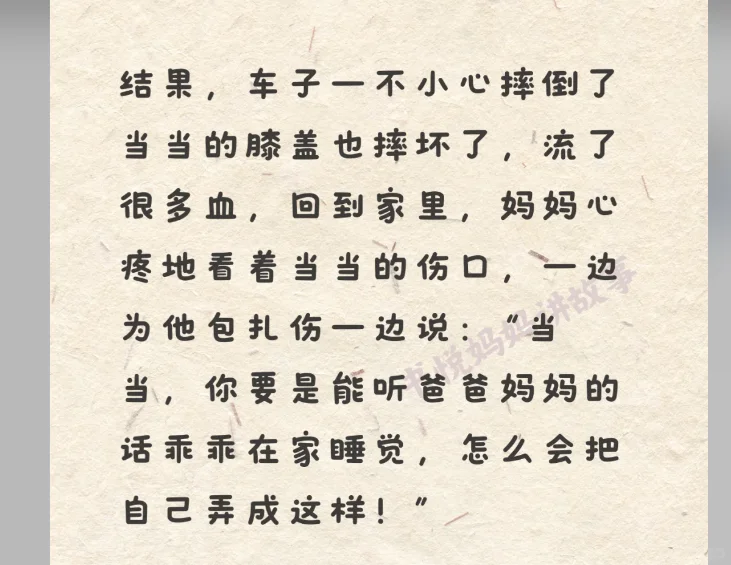 结果，车子一不小心摔倒了
当当的膝盖也摔坏了，流了
很多血，回到家里，妈妈心
疼地看着当当的伤口，一边
为他包扎伤一边说："当
当，你要是能听爸爸妈妈的
话乖乖在家睡觉，怎么会把
自己弄成这样！"
书悦妈妈讲故事